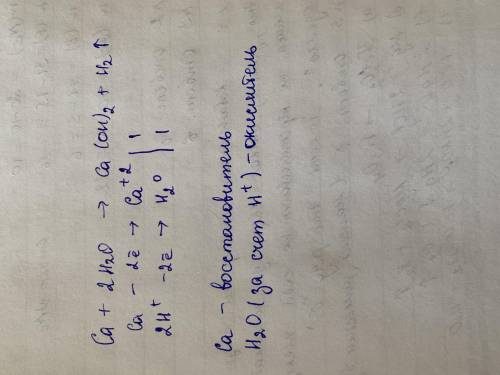 Ca + 2H₂O → Ca(OH)₂ + H₂↑
Ca - 2ē → Ca⁺² | 1
2H⁺ - 2ē → H₂⁰ | 1
Ca - восстановитель
H₂O (за счет H⁺) - окислитель